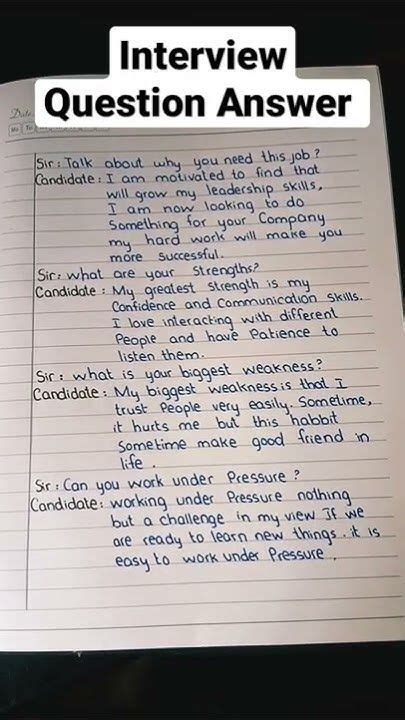 Interview
Question Answer
Date
Mo Tu
Sir : Talk about why you need this job ?
Candidate : I am motivated to find that
will grow my leadership skills,
I am now looking to do
Something for your Company
my hard work will make you
more successful.
Sir : what are your Strengths?
Candidate : My greatest Strength is my
Confidence and Communication Skills.
I love interacting with different
People and have Patience to
listen them.
Sir : what is your biggest weakness ?
Candidate : My biggest weakness is that I
trust People very easily. Sometime,
it hurts me but this habbit
Sometime make good friend in
life .
Sir : Can you work under Pressure ?
Candidate : working under Pressure nothing
but a challenge in my view If we
are ready to learn new things . it is
easy to work under Pressure .